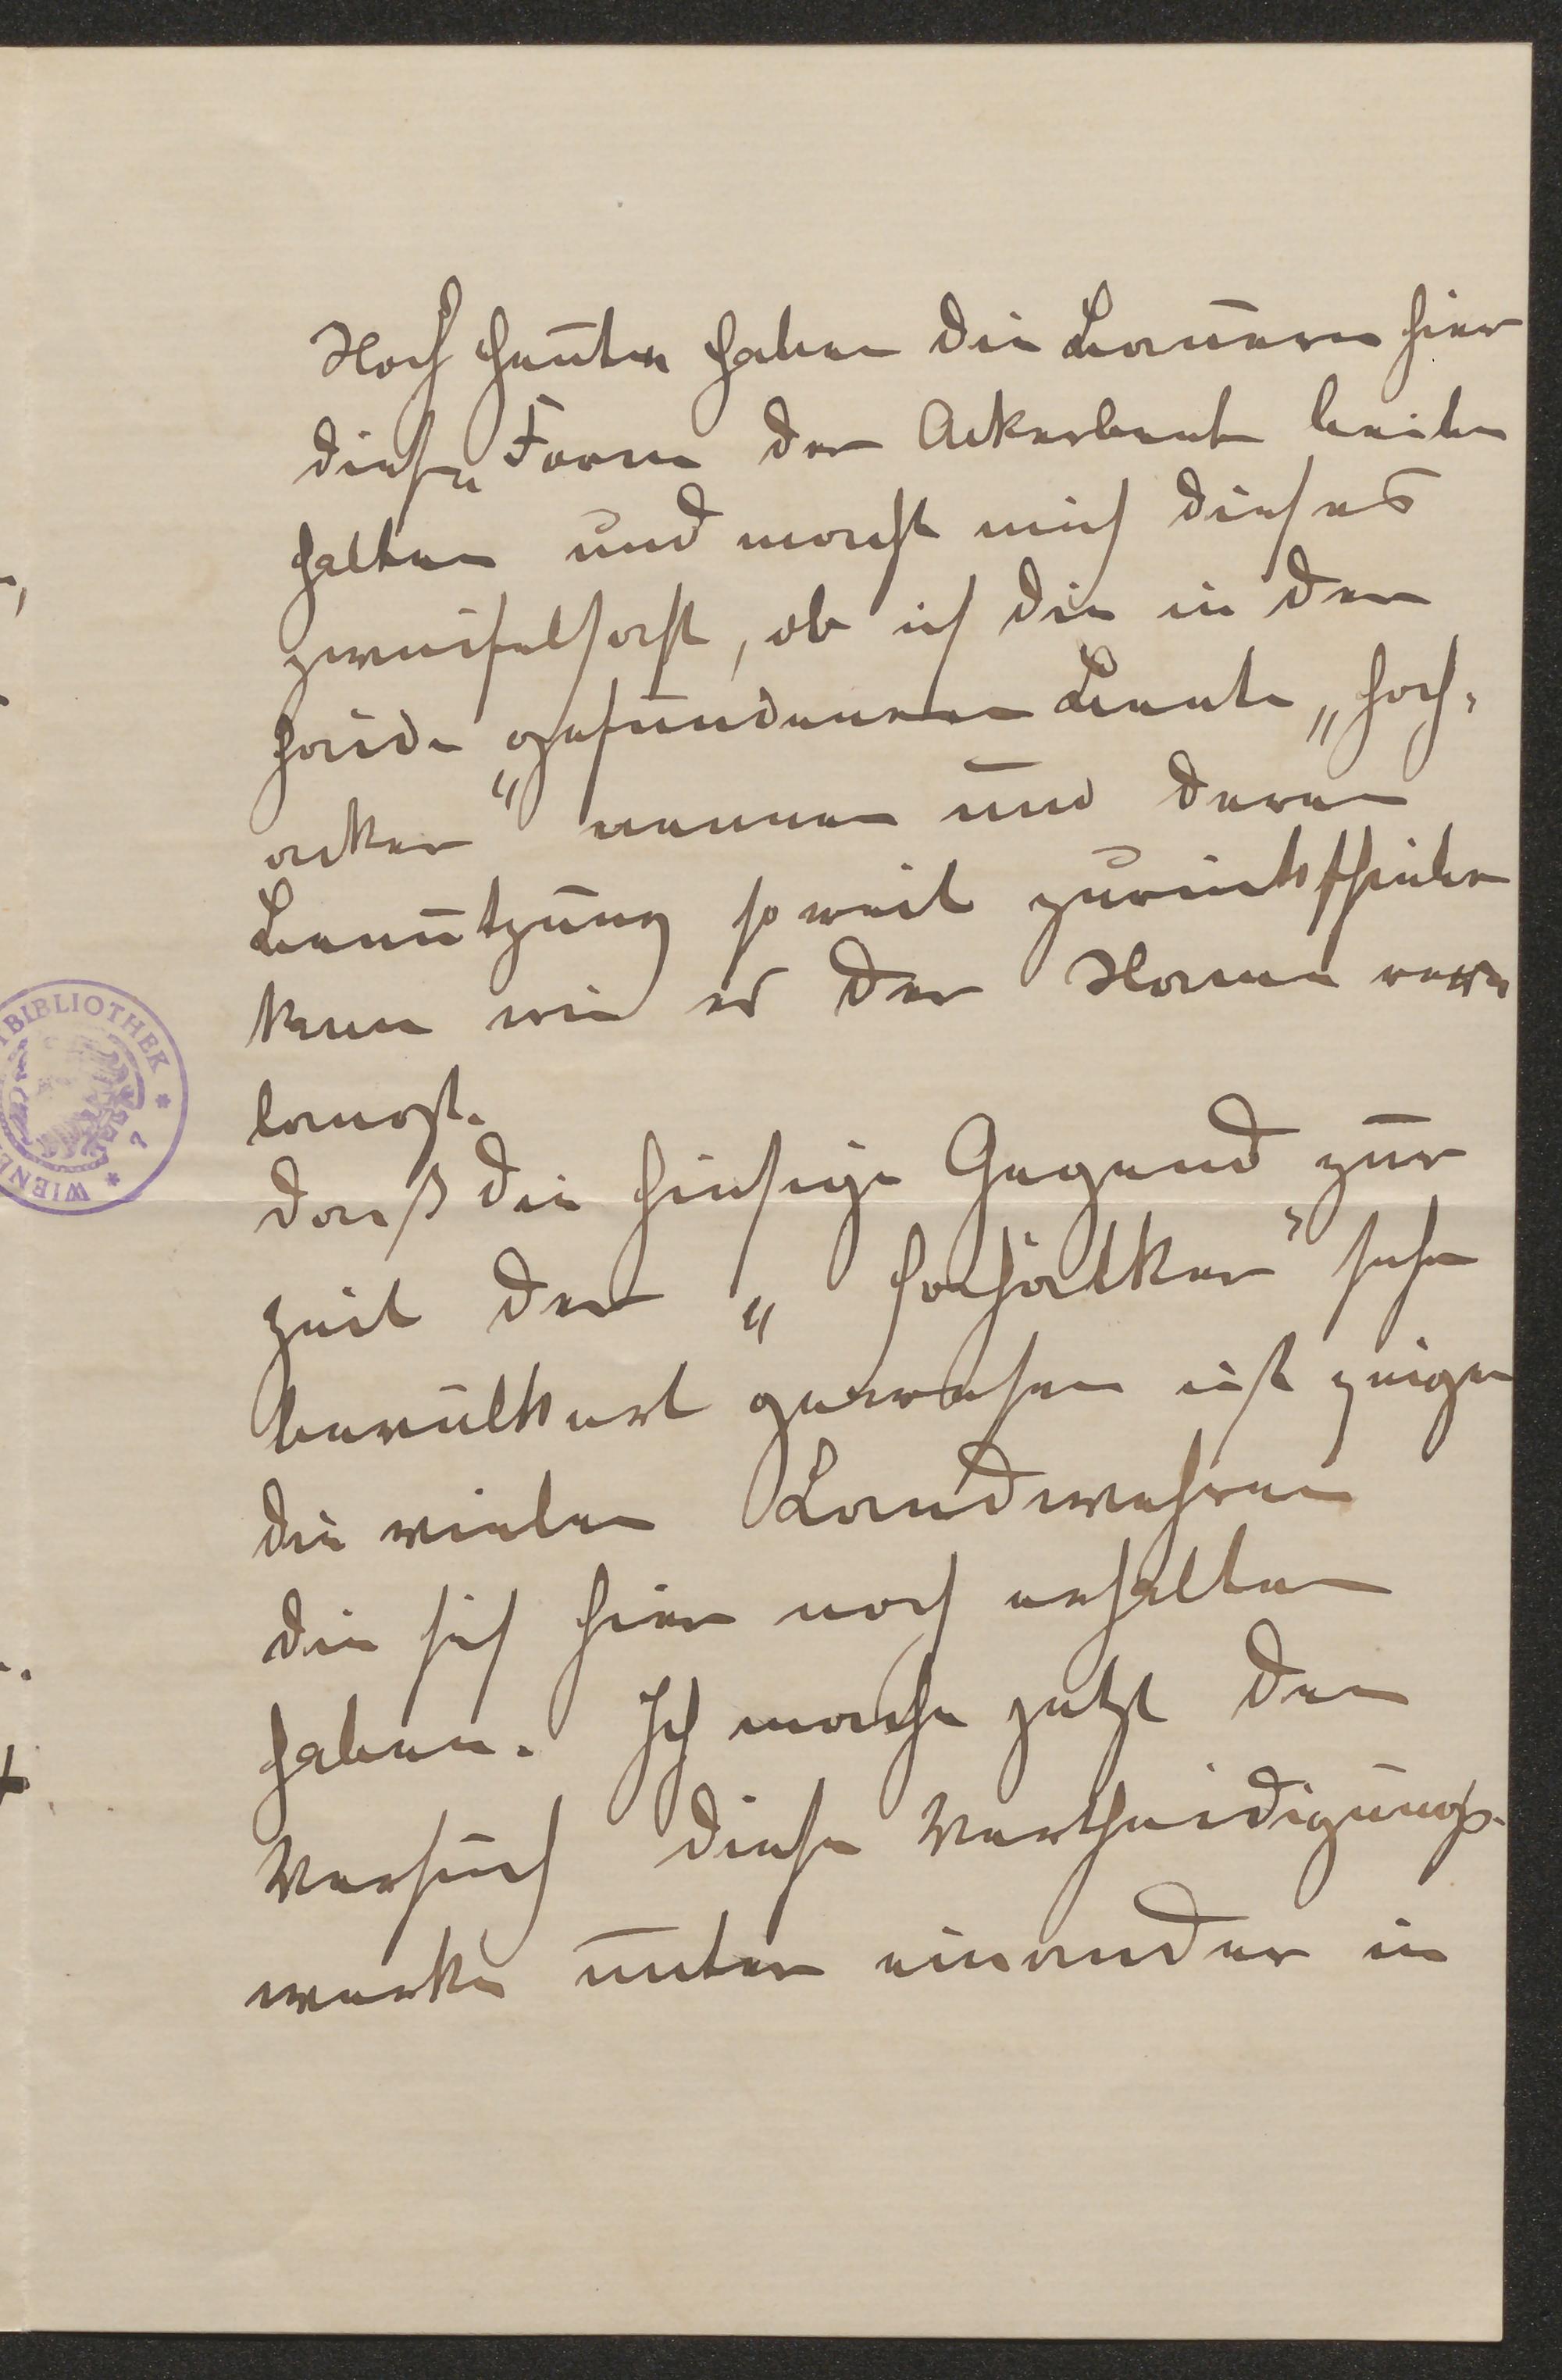 Noch heute haben die Bauern hier
diese Form der Ackerbeete beibe
halten und macht mich dieses
zweifelhaft, ob ich die in der
Haide gefundenen Beete „Hoch-
äcker“ nennen und deren
Benutzung so weit zurückschieben
kann wie es der Name ver
langt.
Daß die hiesige Gegend zur
Zeit der „Hochäcker“ sehr
bevölkert gewesen ist zeigen
die vielen Landwehren
die sich hier noch erhalten
haben. Ich mache jetzt den
Versuch diese Vertheidigungs-
werke unter einander in
BIBLIOTHEK
WIENE